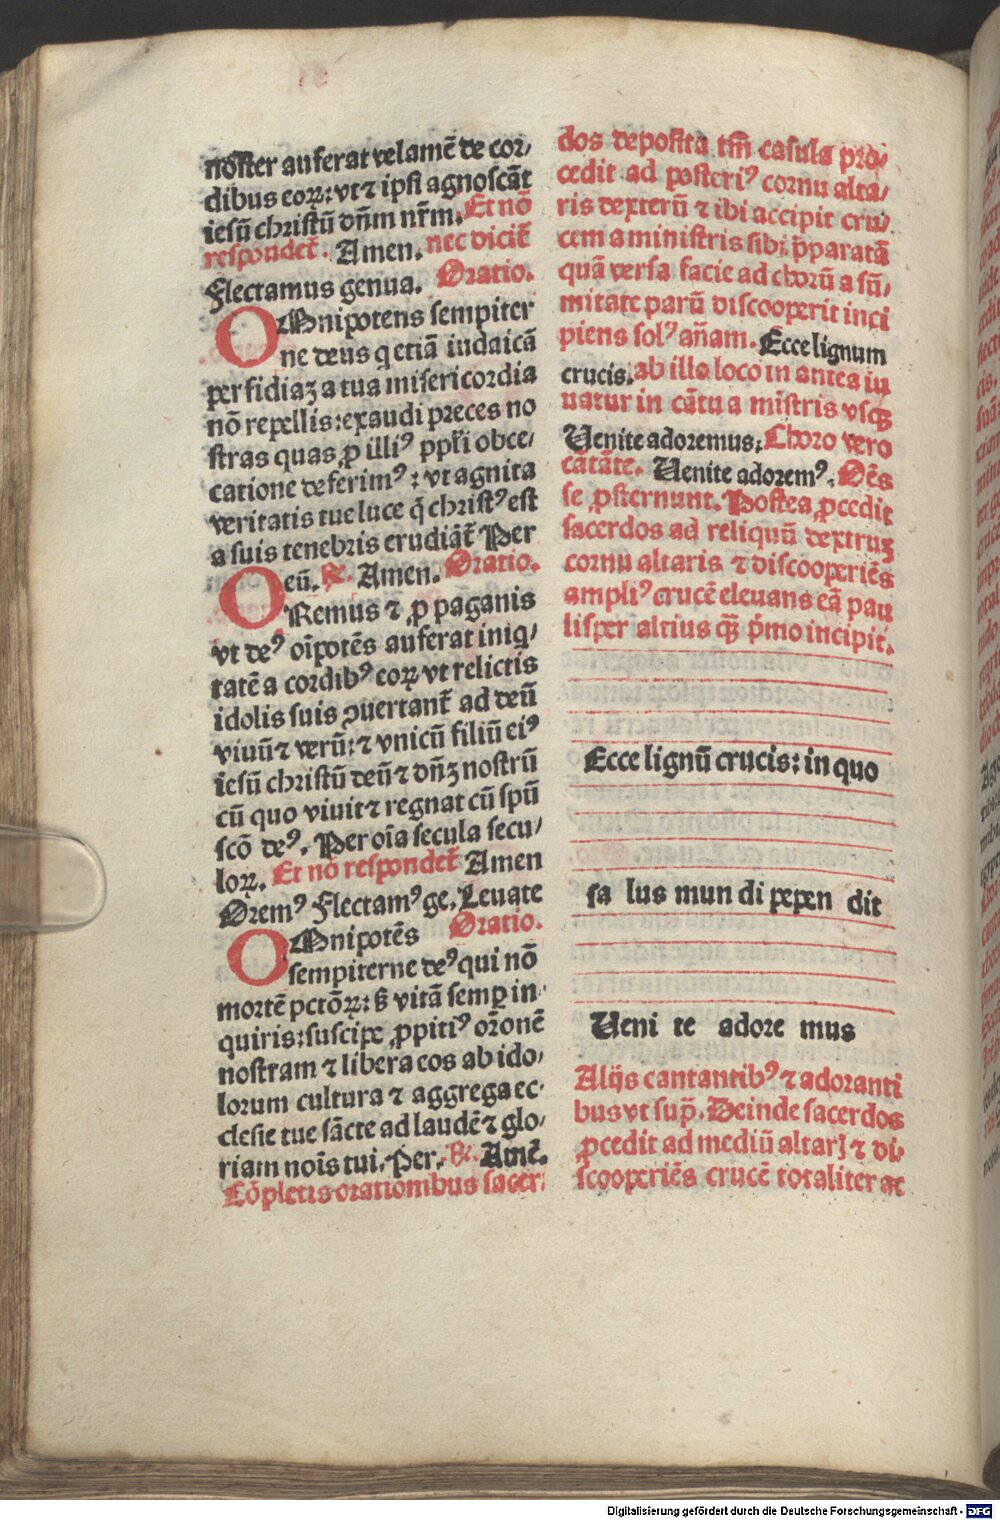 noster auferat velamē de cor/
dibus eoꝝ: vt ⁊ ipsi agnoscāt
iesū christū dn̄m nr̄m. Et nō
respondet̄. Amen. nec dicit̄
Flectamus genua. Oratio.
OMnipotens sempiter
ne deus q etiā iudaicā
perfidiaꝫ a tua misericordia
nō repellis: exaudi preces no
stras quas ꝓ illiꝰ ppl̄i obce/
catione deferimꝰ: vt agnita
veritatis tue luce q̄ christꝰ est
a suis tenebris erudiāt̄ Per
eū. ℟. Amen. Oratio.
ORemus ⁊ ꝓ paganis
vt deꝰ oīpotēs auferat iniq/
tatē a cordibꝰ eoꝝ vt relictis
idolis suis ꝯuertant̄ ad deū
viuū ⁊ verū: ⁊ vnicū filiū eiꝰ
iesū christū deū ⁊ dn̄ꝫ nostrū
cū quo viuit ⁊ regnat cū spū
scō deꝰ. Per oīa secula secu/
loꝝ. Et nō respondet̄ Amen
Oremꝰ Flectamꝰ ge. Leuate
Oratio.
OMnipotēs
sempiterne deꝰ qui nō
mortē pctōꝝ: ß vitā semꝑ in
quiris: suscipe ꝓpitiꝰ or̄onē
nostram ⁊ libera eos ab ido/
lorum cultura ⁊ aggrega ec-
clesie tue sācte ad laudē ⁊ glo/
riam nōis tui. Per. ℟. Amē.
Cōpletis orationibus sacer:
dos deposita tm̄ casula pro/
cedit ad posteriꝰ cornu alta/
ris dexterū ⁊ ibi accipit cru/
cem a ministris sibi p̄paratā
quā versa facie ad chorū a sū/
mitate parū discooperit inci
piens solꝰ an̄am. Ecce lignum
crucis. ab illo loco in antea iu
uatur in cātu a mīstris vsqꝫ
Uenite adoremus: Choro vero
cātāte. Uenite adoremꝰ. Oēs
se ꝓsternunt. Postea ꝓcedit
sacerdos ad reliquū dextruꝫ
cornu altaris ⁊ discooperiēs
ampliꝰ crucē eleuans eā pau
lisper altius qꝫ̄ p̄mo incipit.
Ecce lignū crucis: in quo
sa lus mun di pepen dit
Ueni te adore mus
Alijs cantantibꝰ ⁊ adoranti
bus vt sup̄. Deinde sacerdos
ꝓcedit ad mediū altarꝭ ⁊ di-
scooperiēs crucē totaliter ac
Digitalisierung gefördert durch die Deutsche Forschungsgemeinschaft - DFG